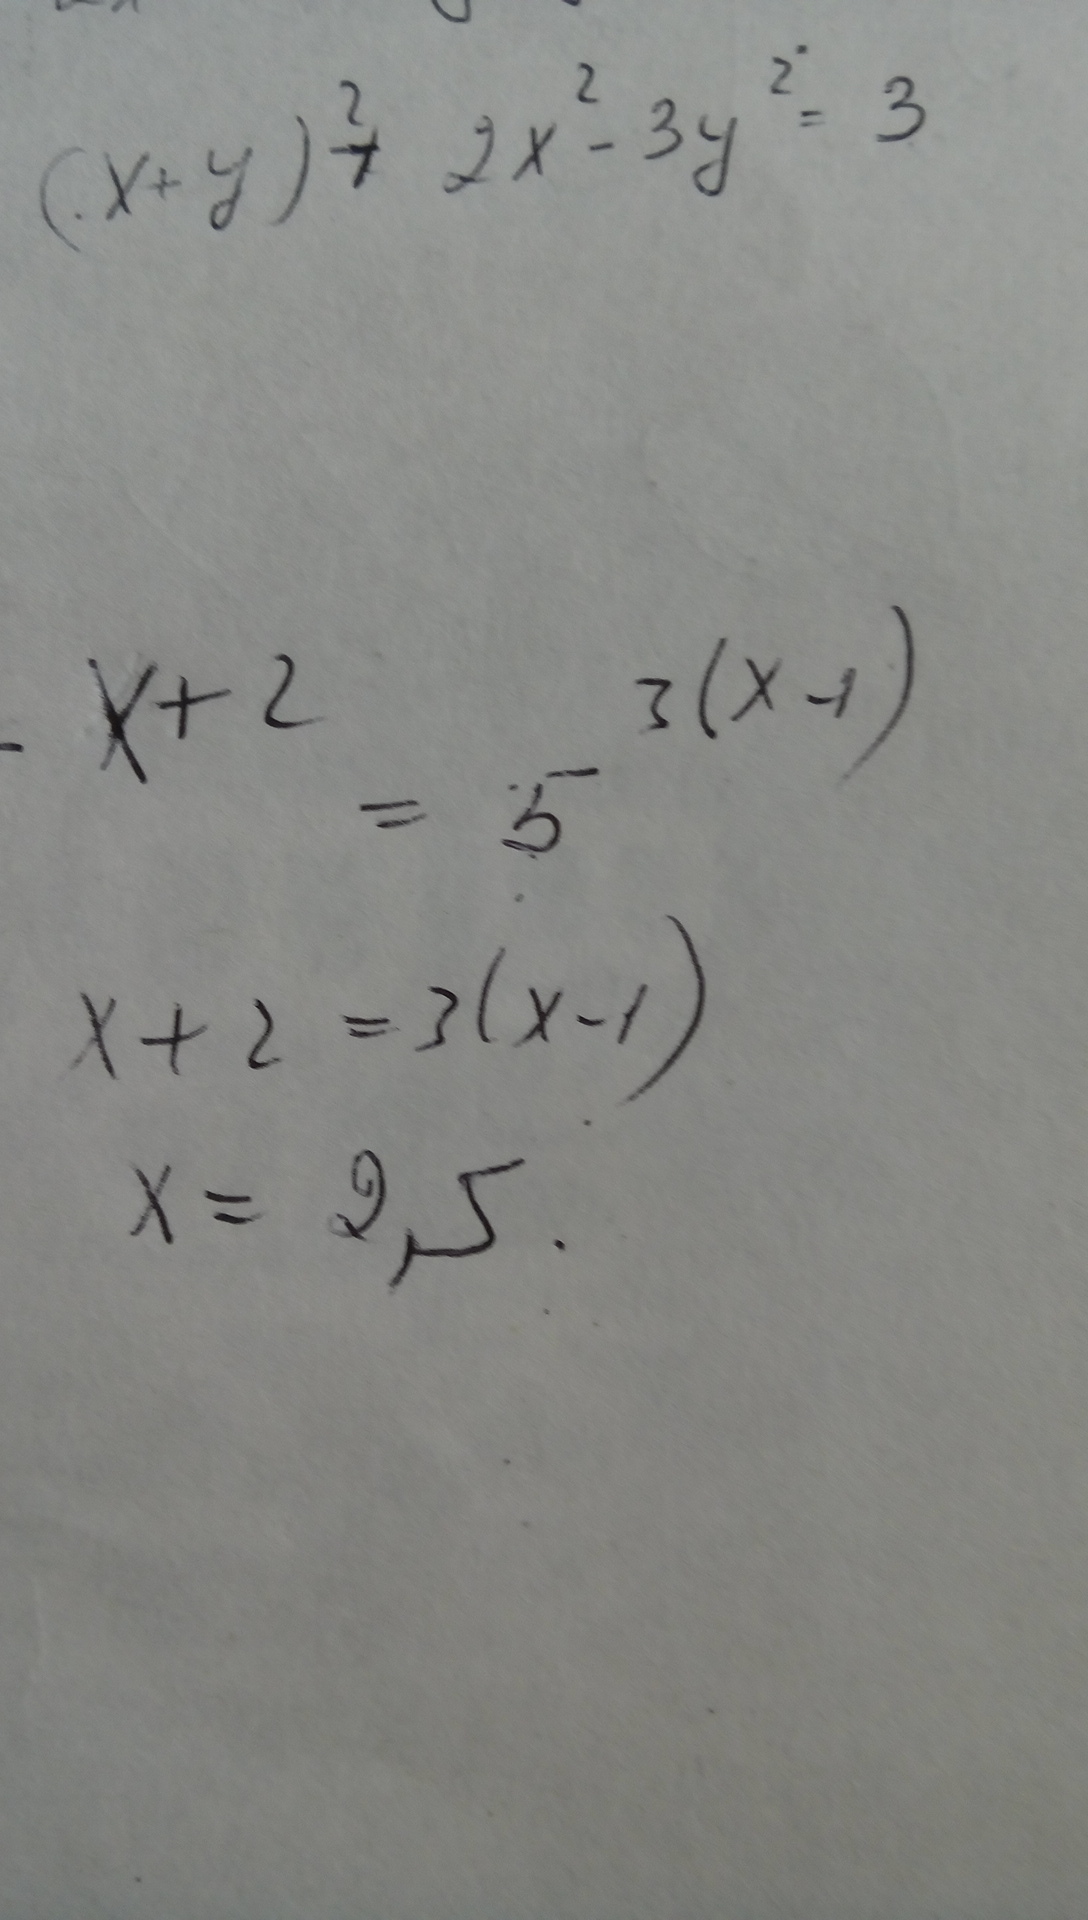 (x+y)² + 2x² - 3y² = 3
- x+2 = 5 3(x-1)
x+2 = 3(x-1)
x = 2,5.